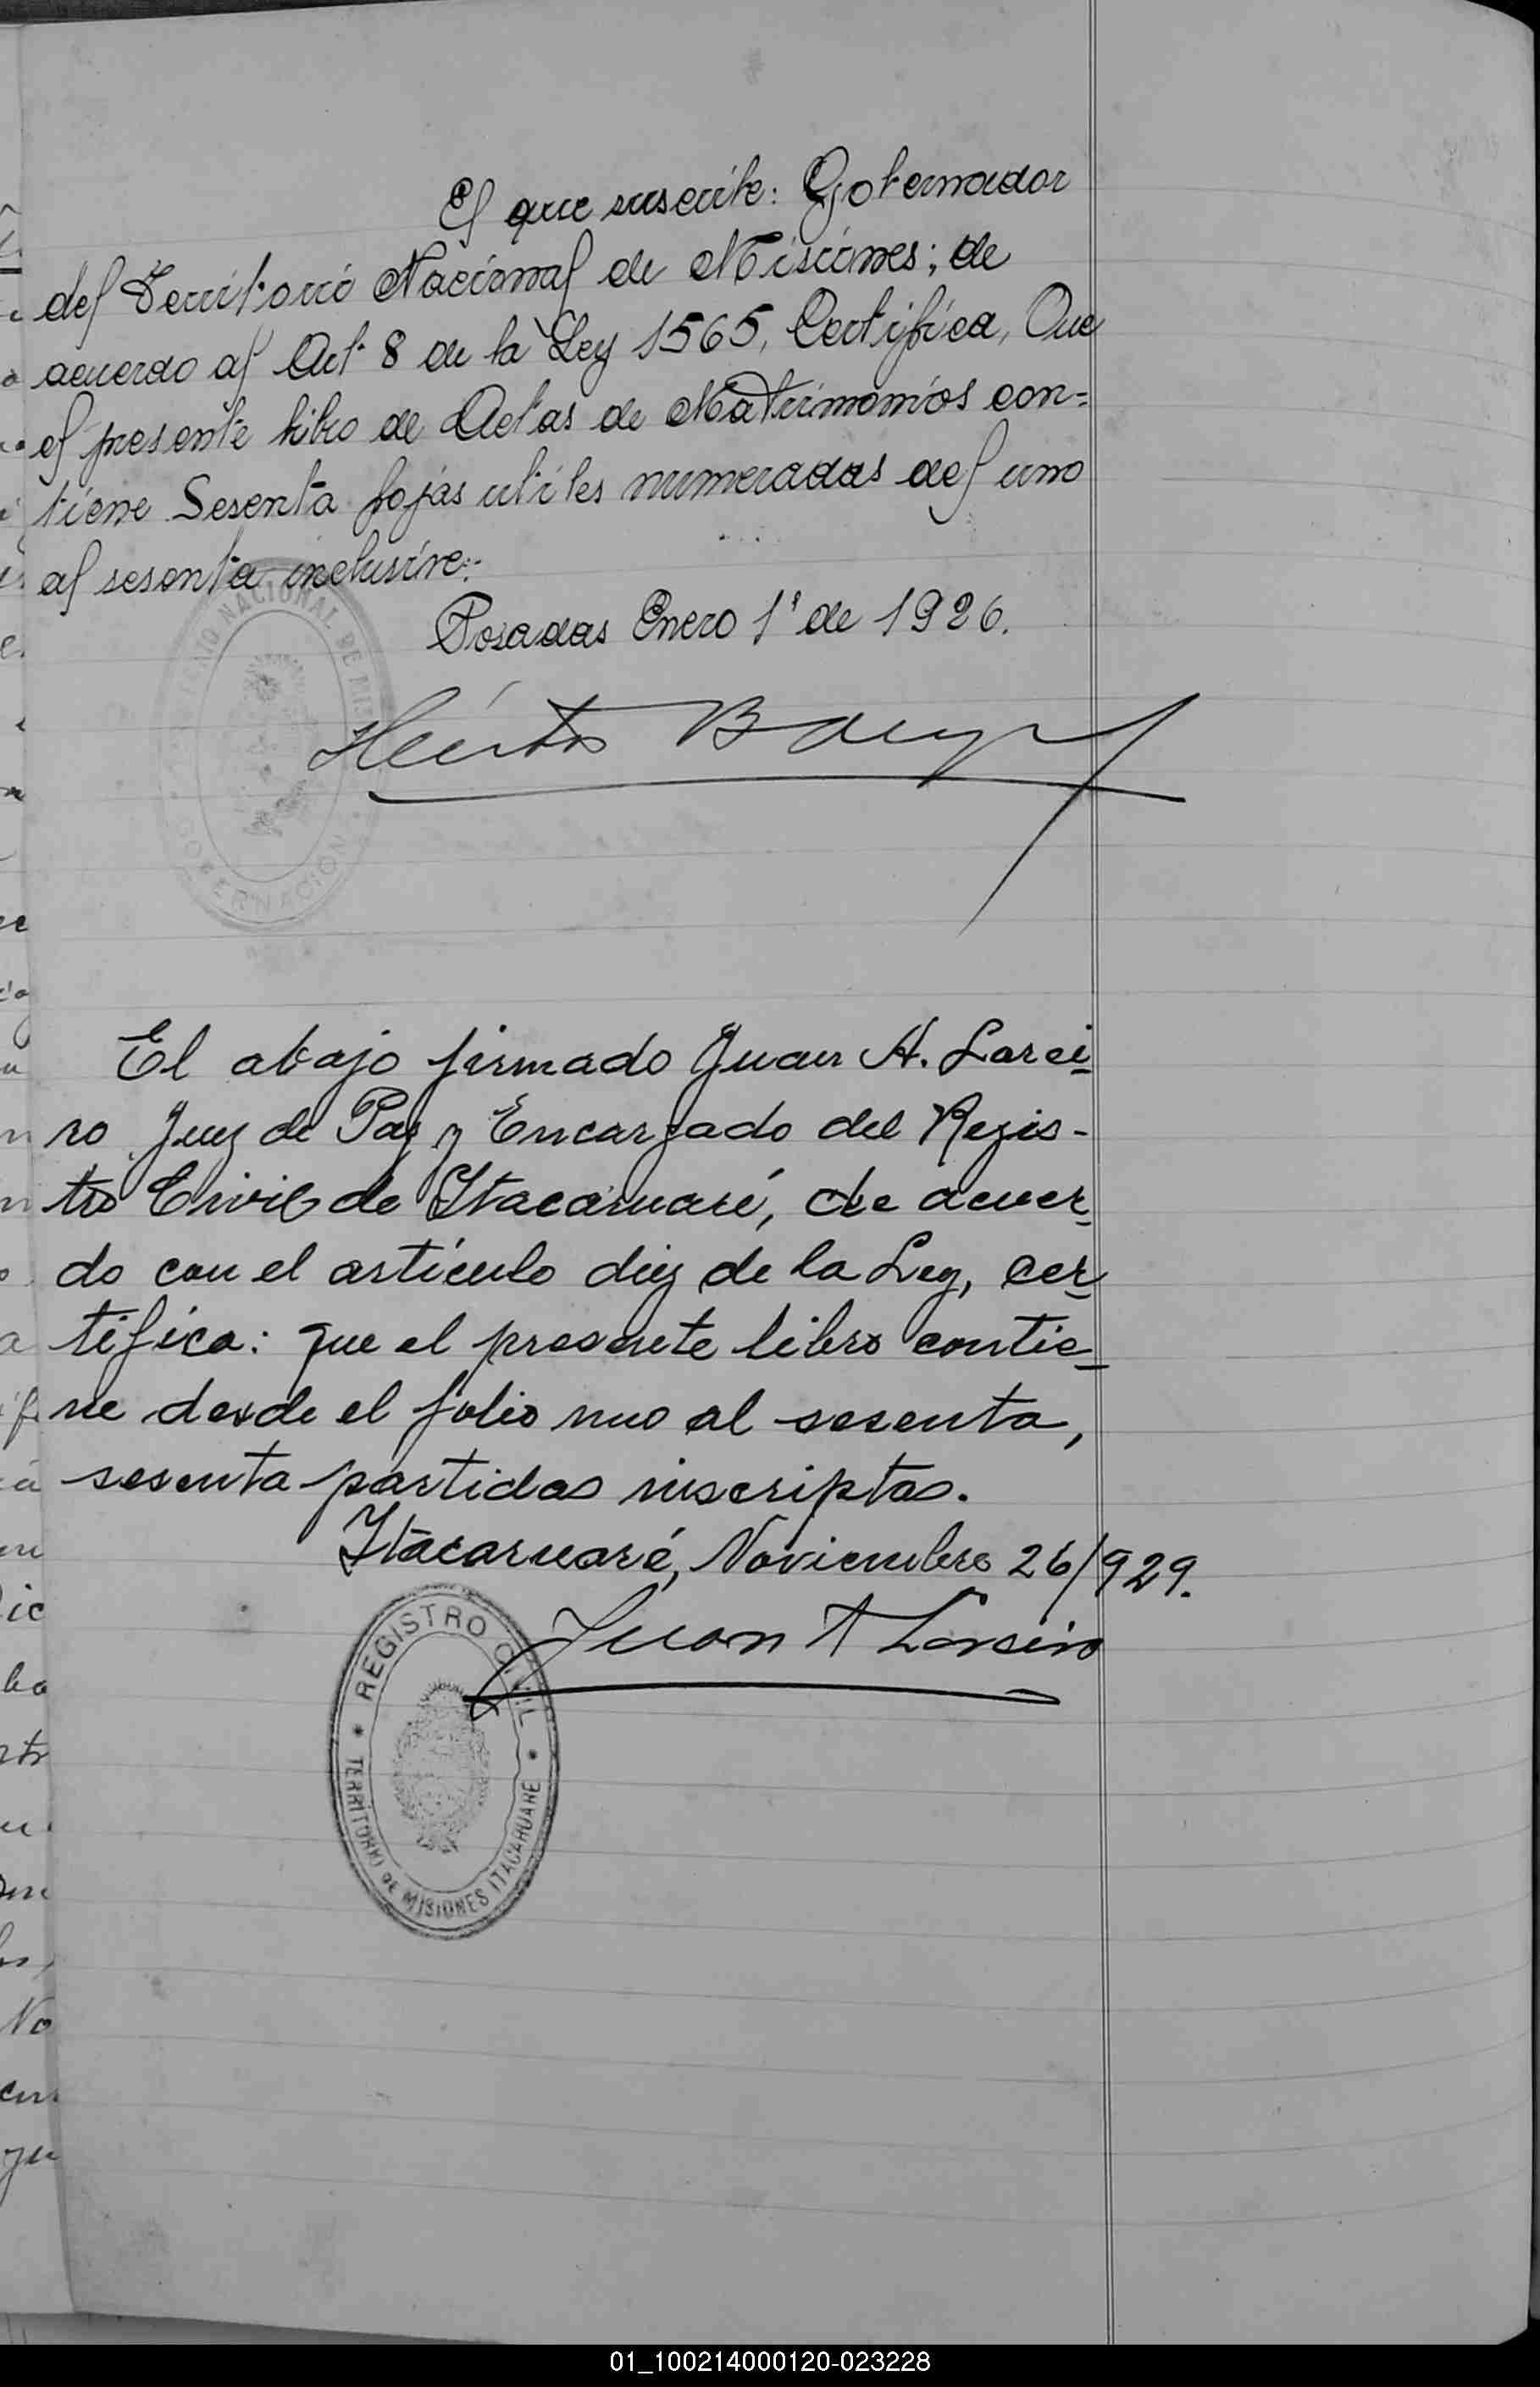 El que suscribe: Gobernador
del Territorio Nacional de Misiones; de
acuerdo al Art. 8 de la Ley 1565, Certifica, Que
el presente libro de Actas de Matrimonios con=
tiene Sesenta fojas utiles numeradas del uno
al sesenta inclusive.
Posadas Enero 1º de 1926.
TERRITORIO NACIONAL DE MISIONES
GOBERNACION
El abajo firmado Juan A. Larei
ro Juez de Paz y Encargado del Regis-
tro Civil de Itacaruaré, de acuer
do con el artículo diez de la Ley, cer
tifica: que el presente libro contie
ne desde el folio uno al sesenta,
sesenta partidas inscriptas.
Itacaruaré, Noviembre 26/929.
Juan A Lareiro
REGISTRO CIVIL
TERRITORIO DE MISIONES ITACARUARE
01_100214000120-023228